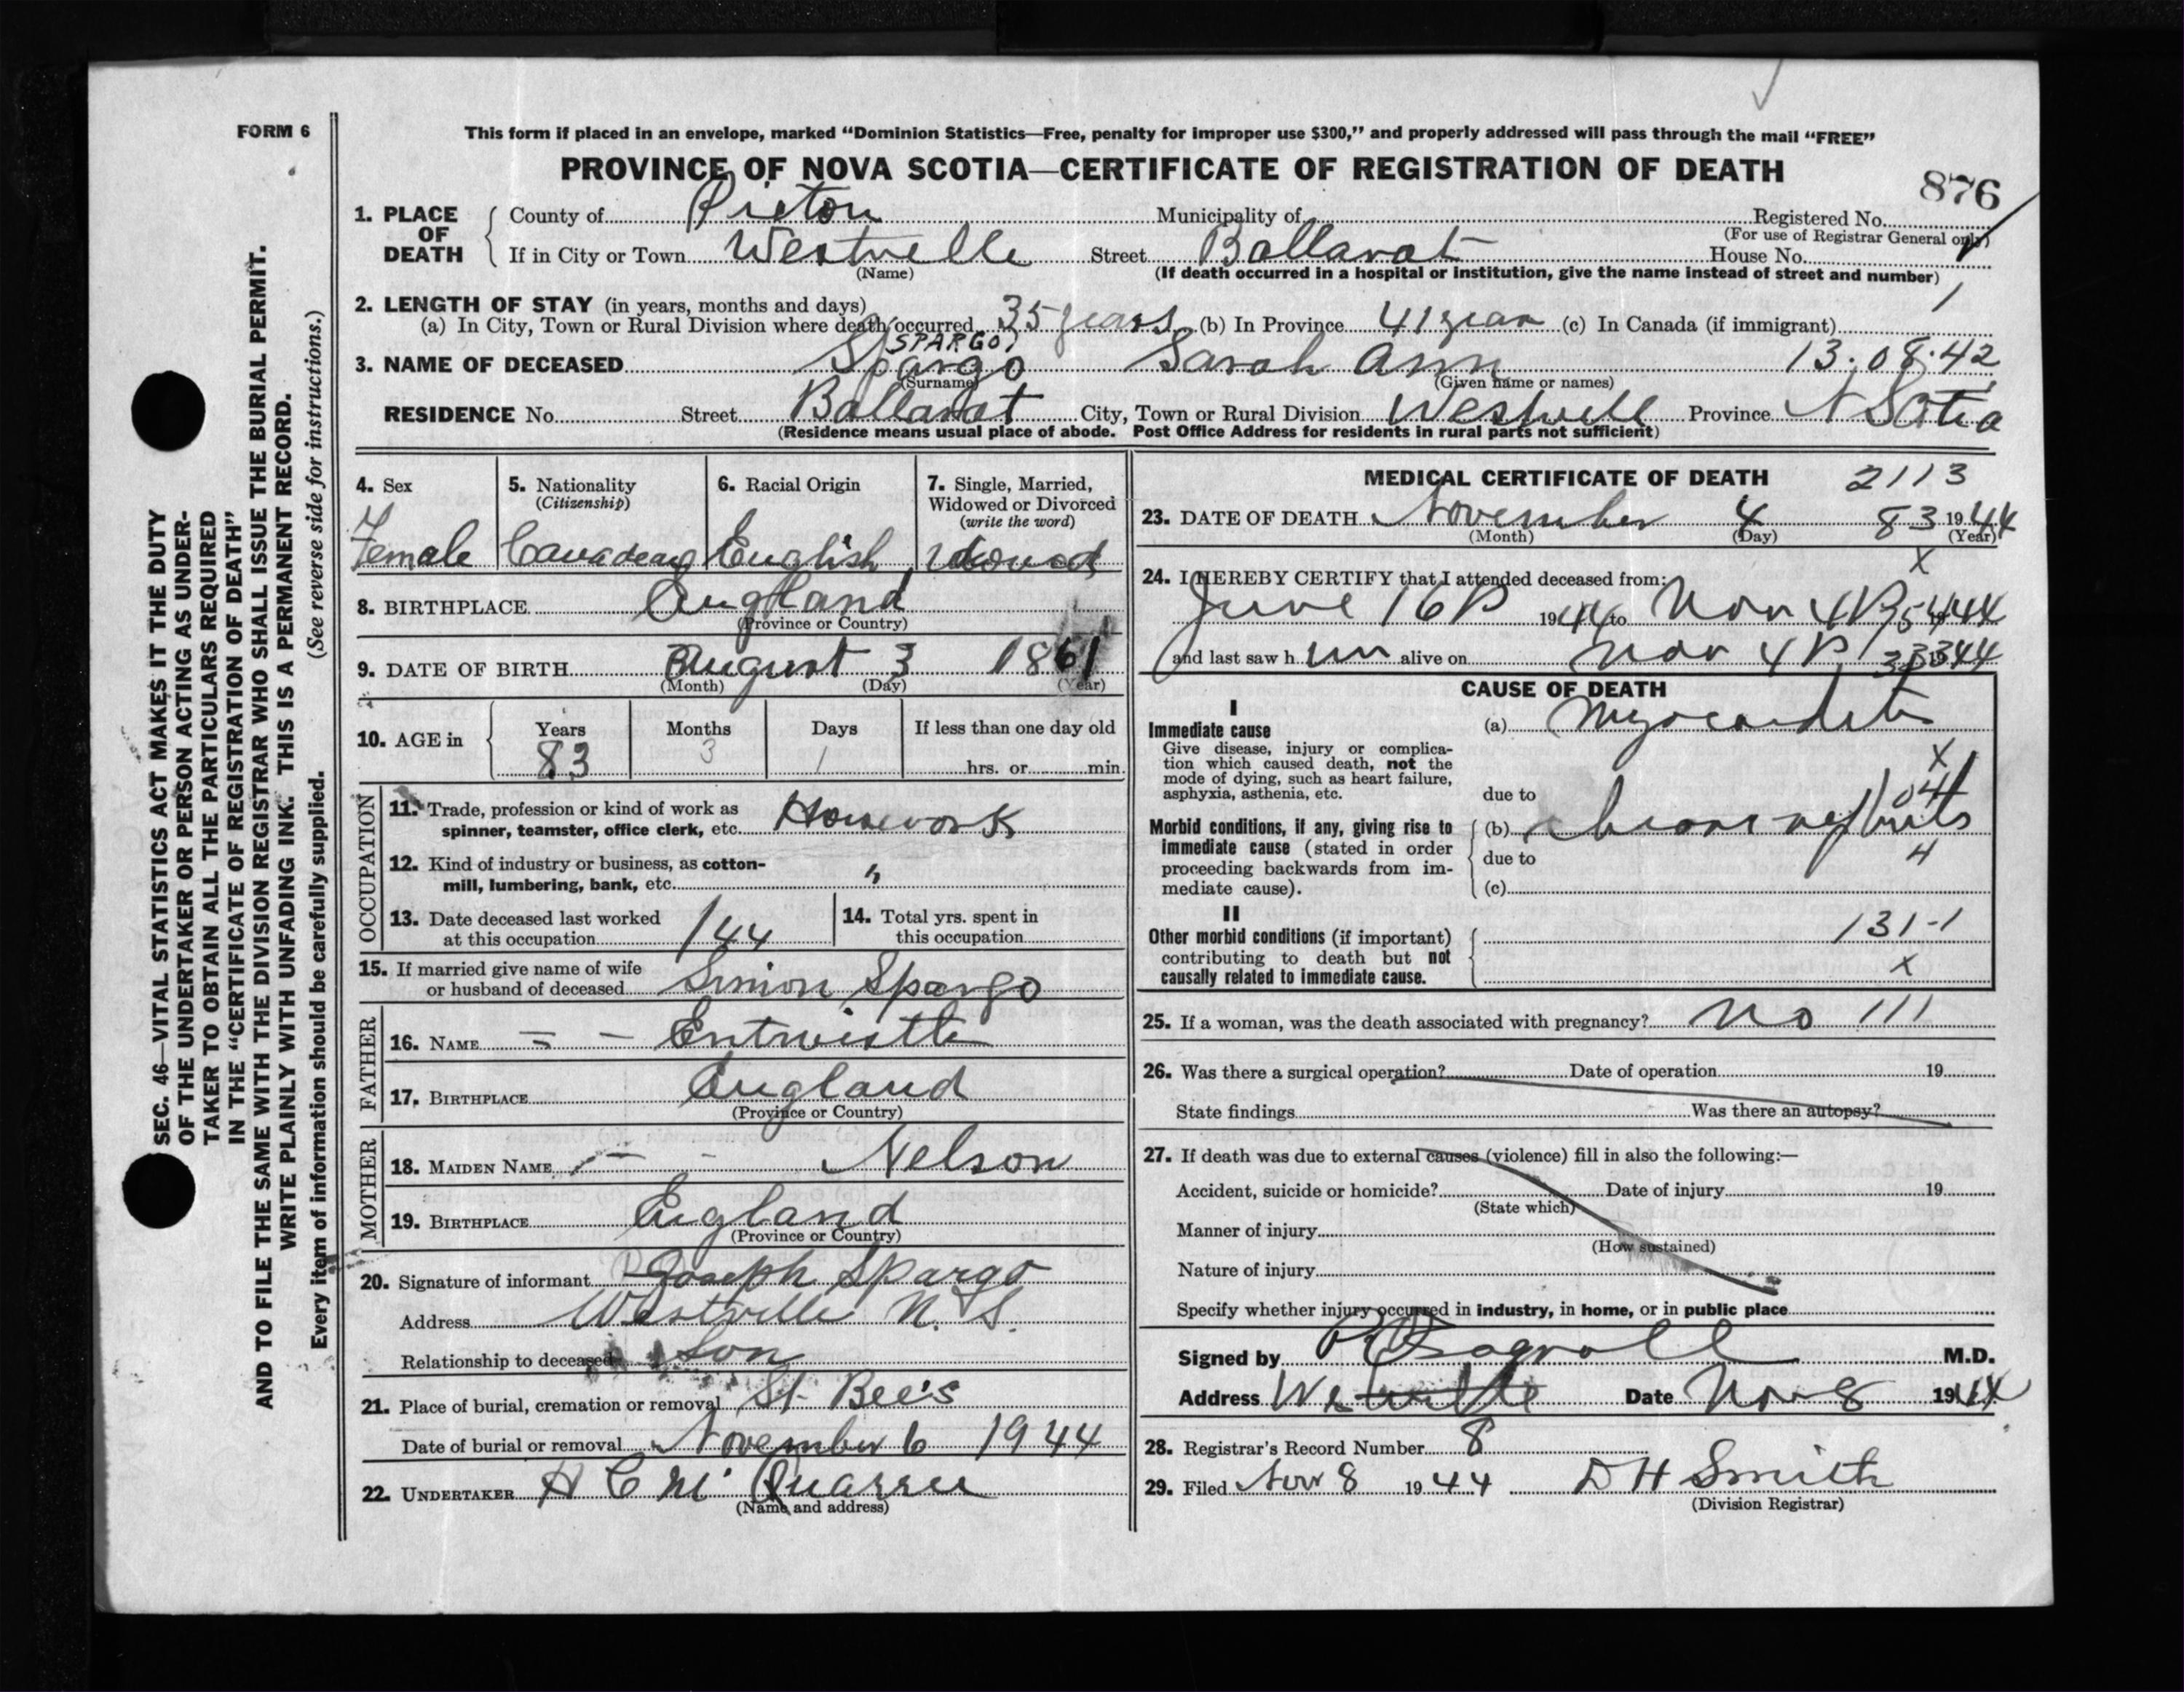 FORM 6
This form if placed in an envelope, marked “Dominion Statistics—Free, penalty for improper use $300,” and properly addressed will pass through the mail “FREE”
PROVINCE OF NOVA SCOTIA—CERTIFICATE OF REGISTRATION OF DEATH
876
1. PLACE OF DEATH County of Pictou Municipality of Registered No.
(For use of Registrar General only)
If in City or Town Westville Street Ballarat House No.
(Name) (If death occurred in a hospital or institution, give the name instead of street and number)
2. LENGTH OF STAY (in years, months and days) 1
(a) In City, Town or Rural Division where death occurred 35 years (b) In Province 41 year (c) In Canada (if immigrant)
(SPARGO)
3. NAME OF DECEASED Spargo Sarah Ann 13.08.42
(Surname) (Given name or names)
RESIDENCE No. Street Ballarat City, Town or Rural Division Westvill Province N Scotia
(Residence means usual place of abode. Post Office Address for residents in rural parts not sufficient)
4. Sex 5. Nationality (Citizenship) 6. Racial Origin 7. Single, Married, Widowed or Divorced (write the word)
Female English
8. BIRTHPLACE England
(Province or Country)
9. DATE OF BIRTH August 3 1861
(Month) (Day) (Year)
10. AGE in Years Months Days If less than one day old
83 3 1 hrs. or min.
OCCUPATION
11. Trade, profession or kind of work as
spinner, teamster, office clerk, etc. Housework
12. Kind of industry or business, as cotton-
mill, lumbering, bank, etc. "
13. Date deceased last worked
at this occupation 144
14. Total yrs. spent in
this occupation
15. If married give name of wife
or husband of deceased Simon Spargo
FATHER
16. NAME = — Entwistle
17. BIRTHPLACE England
(Province or Country)
MOTHER
18. MAIDEN NAME — - Nelson
19. BIRTHPLACE England
(Province or Country)
20. Signature of informant Joseph Spargo
Address Westville N. S.
Relationship to deceased Son
21. Place of burial, cremation or removal St. Bee's
Date of burial or removal November 6 1944
22. UNDERTAKER H C Mc Quarrie
(Name and address)
MEDICAL CERTIFICATE OF DEATH 2113
23. DATE OF DEATH November 4 83 1944
(Month) (Day) (Year)
X
24. I HEREBY CERTIFY that I attended deceased from:
June 16 1944 to Nov 4 1944
and last saw h alive on Nov 4 1944
CAUSE OF DEATH
I
Immediate cause (a) Myocarditis
Give disease, injury or complica-
tion which caused death, not the
mode of dying, such as heart failure,
asphyxia, asthenia, etc.
X
due to 04
Morbid conditions, if any, giving rise to
immediate cause (stated in order
proceeding backwards from im-
mediate cause).
(b) chronic nephritis
due to 4
(c)
II
Other morbid conditions (if important)
contributing to death but not
causally related to immediate cause.
131-1
X
25. If a woman, was the death associated with pregnancy? No 111
26. Was there a surgical operation? Date of operation 19
State findings Was there an autopsy?
27. If death was due to external causes (violence) fill in also the following:—
Accident, suicide or homicide? Date of injury 19
(State which)
Manner of injury
(How sustained)
Nature of injury
Specify whether injury occurred in industry, in home, or in public place
Signed by M.D.
Address Westville Date Nov 8 1944
28. Registrar's Record Number 8
29. Filed Nov 8 1944 D H Smith
(Division Registrar)
SEC. 46—VITAL STATISTICS ACT MAKES IT THE DUTY
OF THE UNDERTAKER OR PERSON ACTING AS UNDER-
TAKER TO OBTAIN ALL THE PARTICULARS REQUIRED
IN THE “CERTIFICATE OF REGISTRATION OF DEATH”
AND TO FILE THE SAME WITH THE DIVISION REGISTRAR WHO SHALL ISSUE THE BURIAL PERMIT.
WRITE PLAINLY WITH UNFADING INK. THIS IS A PERMANENT RECORD.
Every item of information should be carefully supplied. (See reverse side for instructions.)